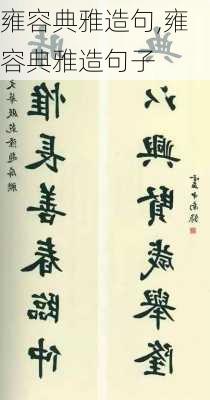 雍容典雅造句,雍
容典雅造句子
時惟長善春臨仲
典以興賢歲舉隆